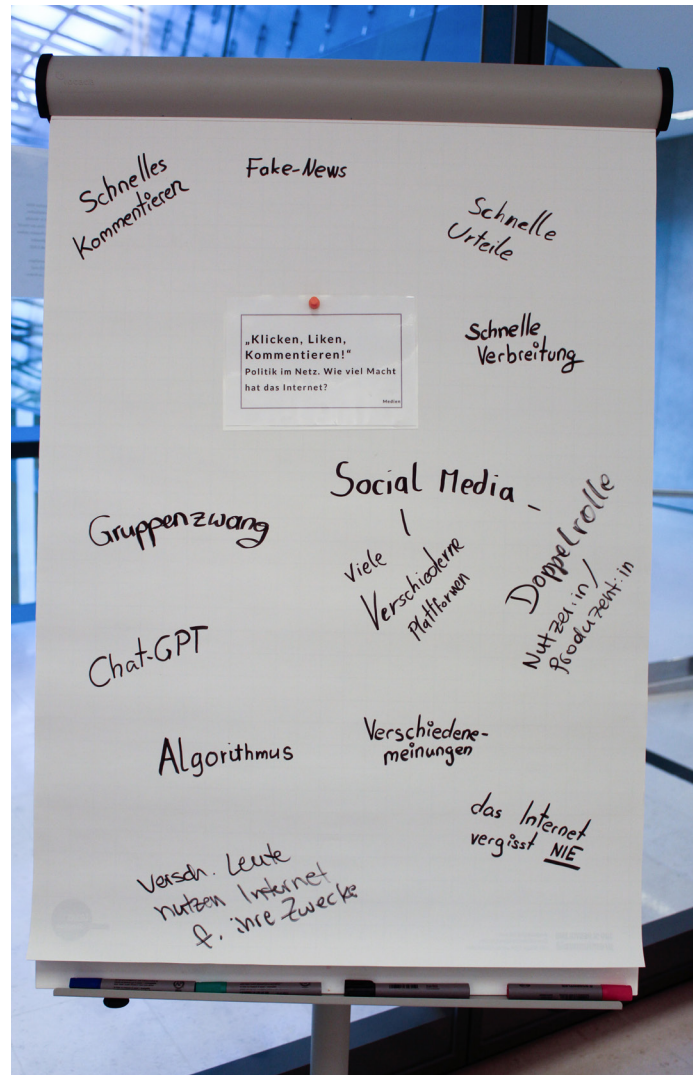 Schnelles
Kommentieren
Fake-News
Schnelle
Urteile
„Klicken, Liken,
Kommentieren!“
Politik im Netz. Wie viel Macht
hat das Internet?
Medien
Schnelle
Verbreitung
Social Media
Gruppenzwang
Viele
Verschiederne
Plattformen
Doppelrolle
Nutzer:in/
Produzent:in
Chat-GPT
Algorithmus
Verschiedene-
meinungen
das Internet
vergisst NIE
Versch. Leute
nutzen Internet
f. ihre Zwecke